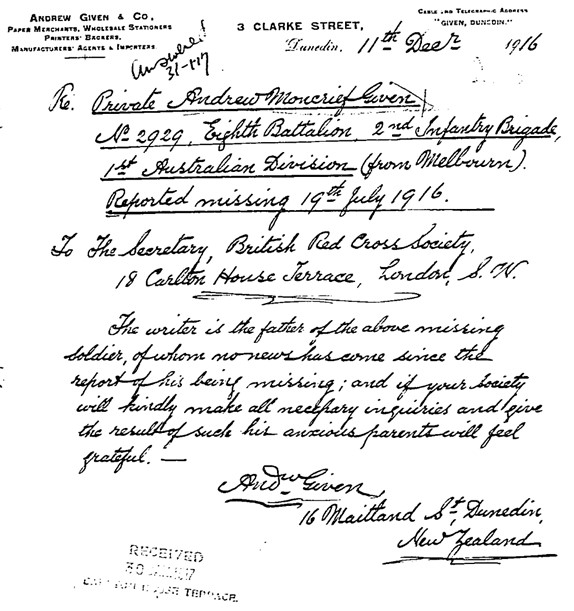 ANDREW GIVEN & CO.
PAPER MERCHANTS, WHOLESALE STATIONERS
PRINTERS' BROKERS,
MANUFACTURERS' AGENTS & IMPORTERS
3 CLARKE STREET,
CABLE AND TELEGRAPHIC ADDRESS
"GIVEN, DUNEDIN."
Dunedin, 11th Decr 1916
Answered
31-1-17
Re. Private Andrew Moncrief Given
No 2929, Eighth Battalion, 2nd Infantry Brigade,
1st Australian Division (from Melbourn).
Reported missing 19th July 1916.
To The Secretary, British Red Cross Society,
18 Carlton House Terrace, London, S.W.
The writer is the father of the above missing
soldier, of whom no news has come since the
report of his being missing; and if your Society
will kindly make all necessary inquiries and give
the result of such his anxious parents will feel
grateful. —
Andw Given,
16 Maitland St, Dunedin,
New Zealand
RECEIVED
30
HOUSE TERRACE.